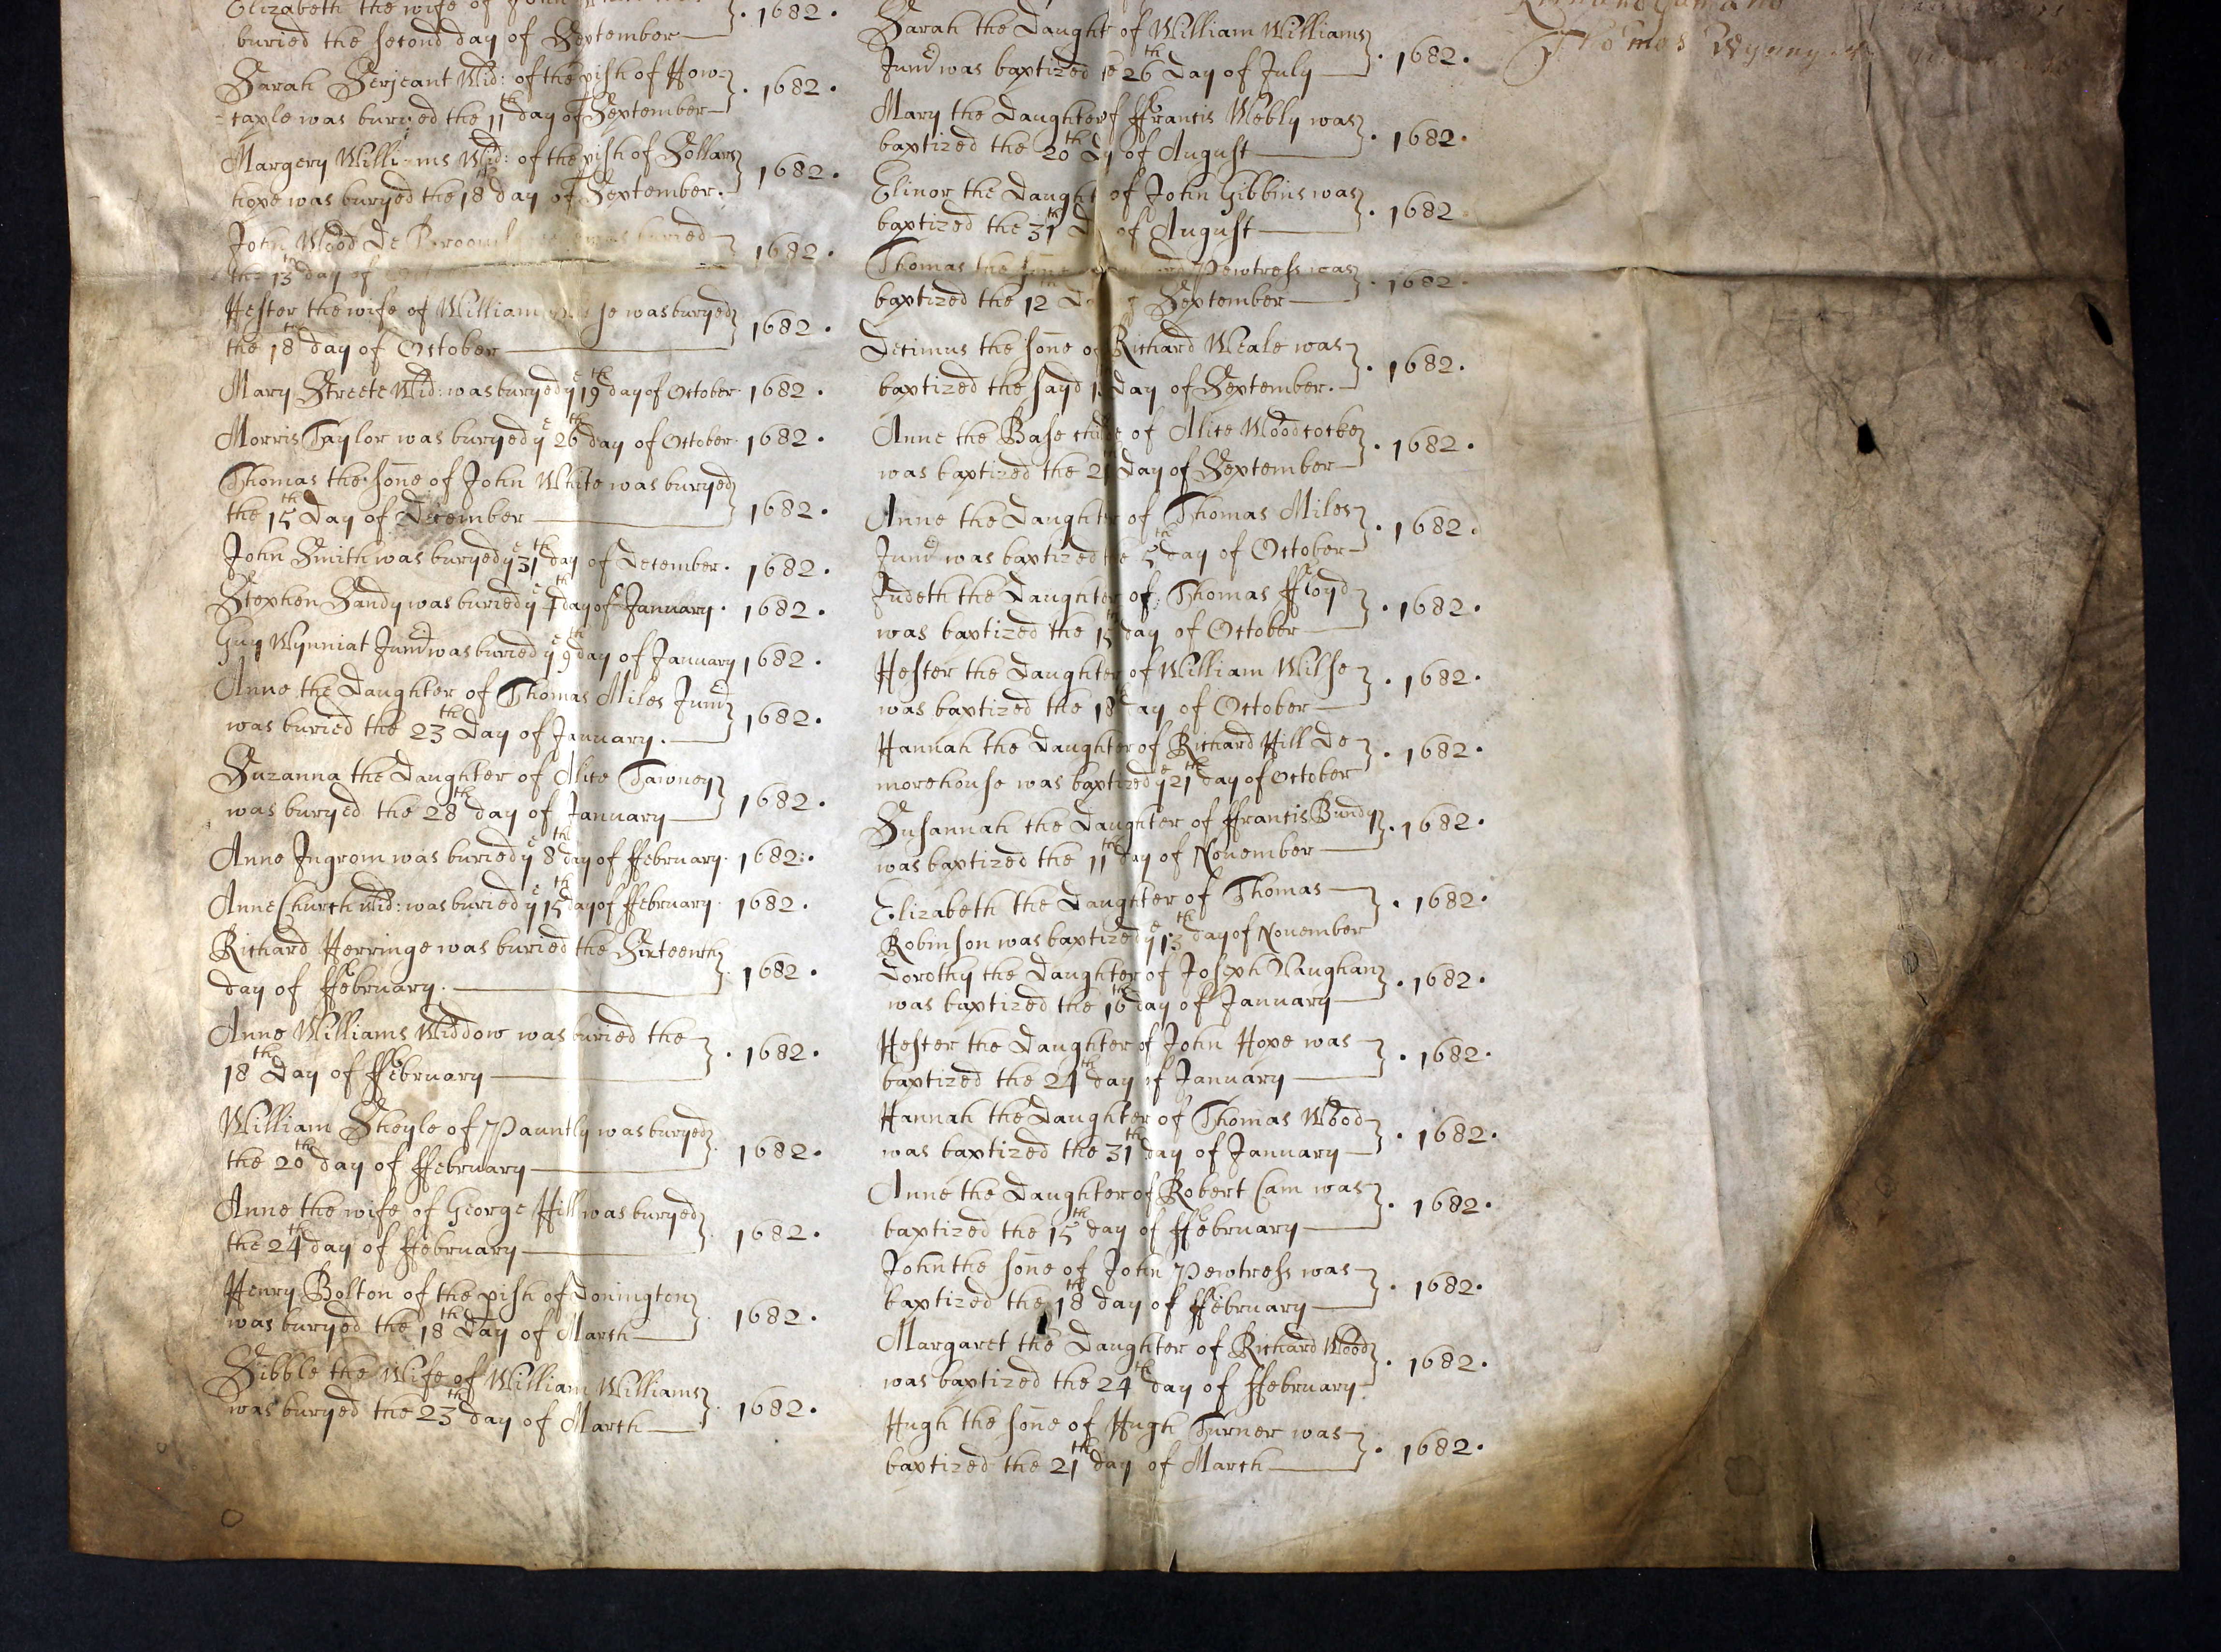 Elizabeth the wife of John
buried the second day of September 1682.
Sarah Serjeant Wid: of the pish of How= 1682.
=caple was buryed the 11th day of September
Margery Williams Wid: of the pish of Sollars 1682.
hope was buryed the 18th day of September.
John Wood de was buried 1682.
the 13th day of
Hester the wife of William was buryed 1682.
the 18th day of October
Mary Streete Wid: was buryed ye 19th day of October. 1682.
Morris Taylor was buryed ye 26th day of October. 1682.
Thomas the sone of John White was buryed 1682.
the 15th Day of December
John Smith was buryed ye 31th day of December. 1682.
Stephen Bandy was buried ye 4th day of January. 1682.
Guy Wynniat Junr was buried ye 9th day of January 1682.
Anne the Daughter of Thomas Miles Junr 1682.
was buried the 23th Day of January.
Suzanna the Daughter of Alice Tawney 1682.
was buryed the 28th day of January
Anne Ingrom was buried ye 8th day of ffebruary. 1682.
Anne Church Wid: was buried ye 15th day of ffebruary. 1682.
Richard Herringe was buried the Sixteenth 1682.
day of ffebruary.
Anne Williams Widdow was buried the 1682.
18th Day of ffebruary
William Skeyle of Pauntly was buryed 1682.
the 20th day of ffebruary
Anne the wife of George Hill was buryed 1682.
the 24th day of ffebruary
Henry Bolton of the pish of Donington 1682.
was buryed the 18th Day of March
Sibble the Wife of William Williams 1682.
was buryed the 23th day of March
Sarah the Daught of William Williams 1682.
Junr was baptized ye 26th Day of July
Mary the Daughter of ffrancis Webly was 1682.
baptized the 20th Dy of August
Elinor the Daught of John Gibbins was 1682
baptized the 31th D of August
Thomas the sone Pewtress was 1682.
baptized the 12 Day September
Decimus the sone of Richard Weale was 1682.
baptized the sayd day of September.
Anne the Base child of Alice Woodcocke 1682.
was baptized the Day of September
Anne the Daughter of Thomas Miles 1682.
Junr was baptized the 5th day of October
Judeth the Daughter of Thomas ffloyd 1682.
was baptized the 15 day of October
Hester the Daughter of William Wilse 1682.
was baptized the 18 day of October
Hannah the Daughter of Richard Hill de 1682.
morehouse was baptized ye 21th day of October
Susannah the Daughter of ffrancis Bundy 1682.
was baptized the 11th day of November
Elizabeth the Daughter of Thomas 1682.
Robinson was baptized ye 13th day of November
Dorothy the Daughter of Joseph Vaughan 1682.
was baptized the 16th day of January
Hester the Daughter of John Hope was 1682.
baptized the 24th day of January
Hannah the Daughter of Thomas Wood 1682.
was baptized the 31th day of January
Anne the Daughter of Robert Cam was 1682.
baptized the 15th day of ffebruary
John the sone of John Pewtress was 1682.
baptized the 18th day of ffebruary
Margaret the Daughter of Richard Wood 1682.
was baptized the 24th day of ffebruary
Hugh the sone of Hugh Turner was 1682.
baptized the 21th day of March
Thomas